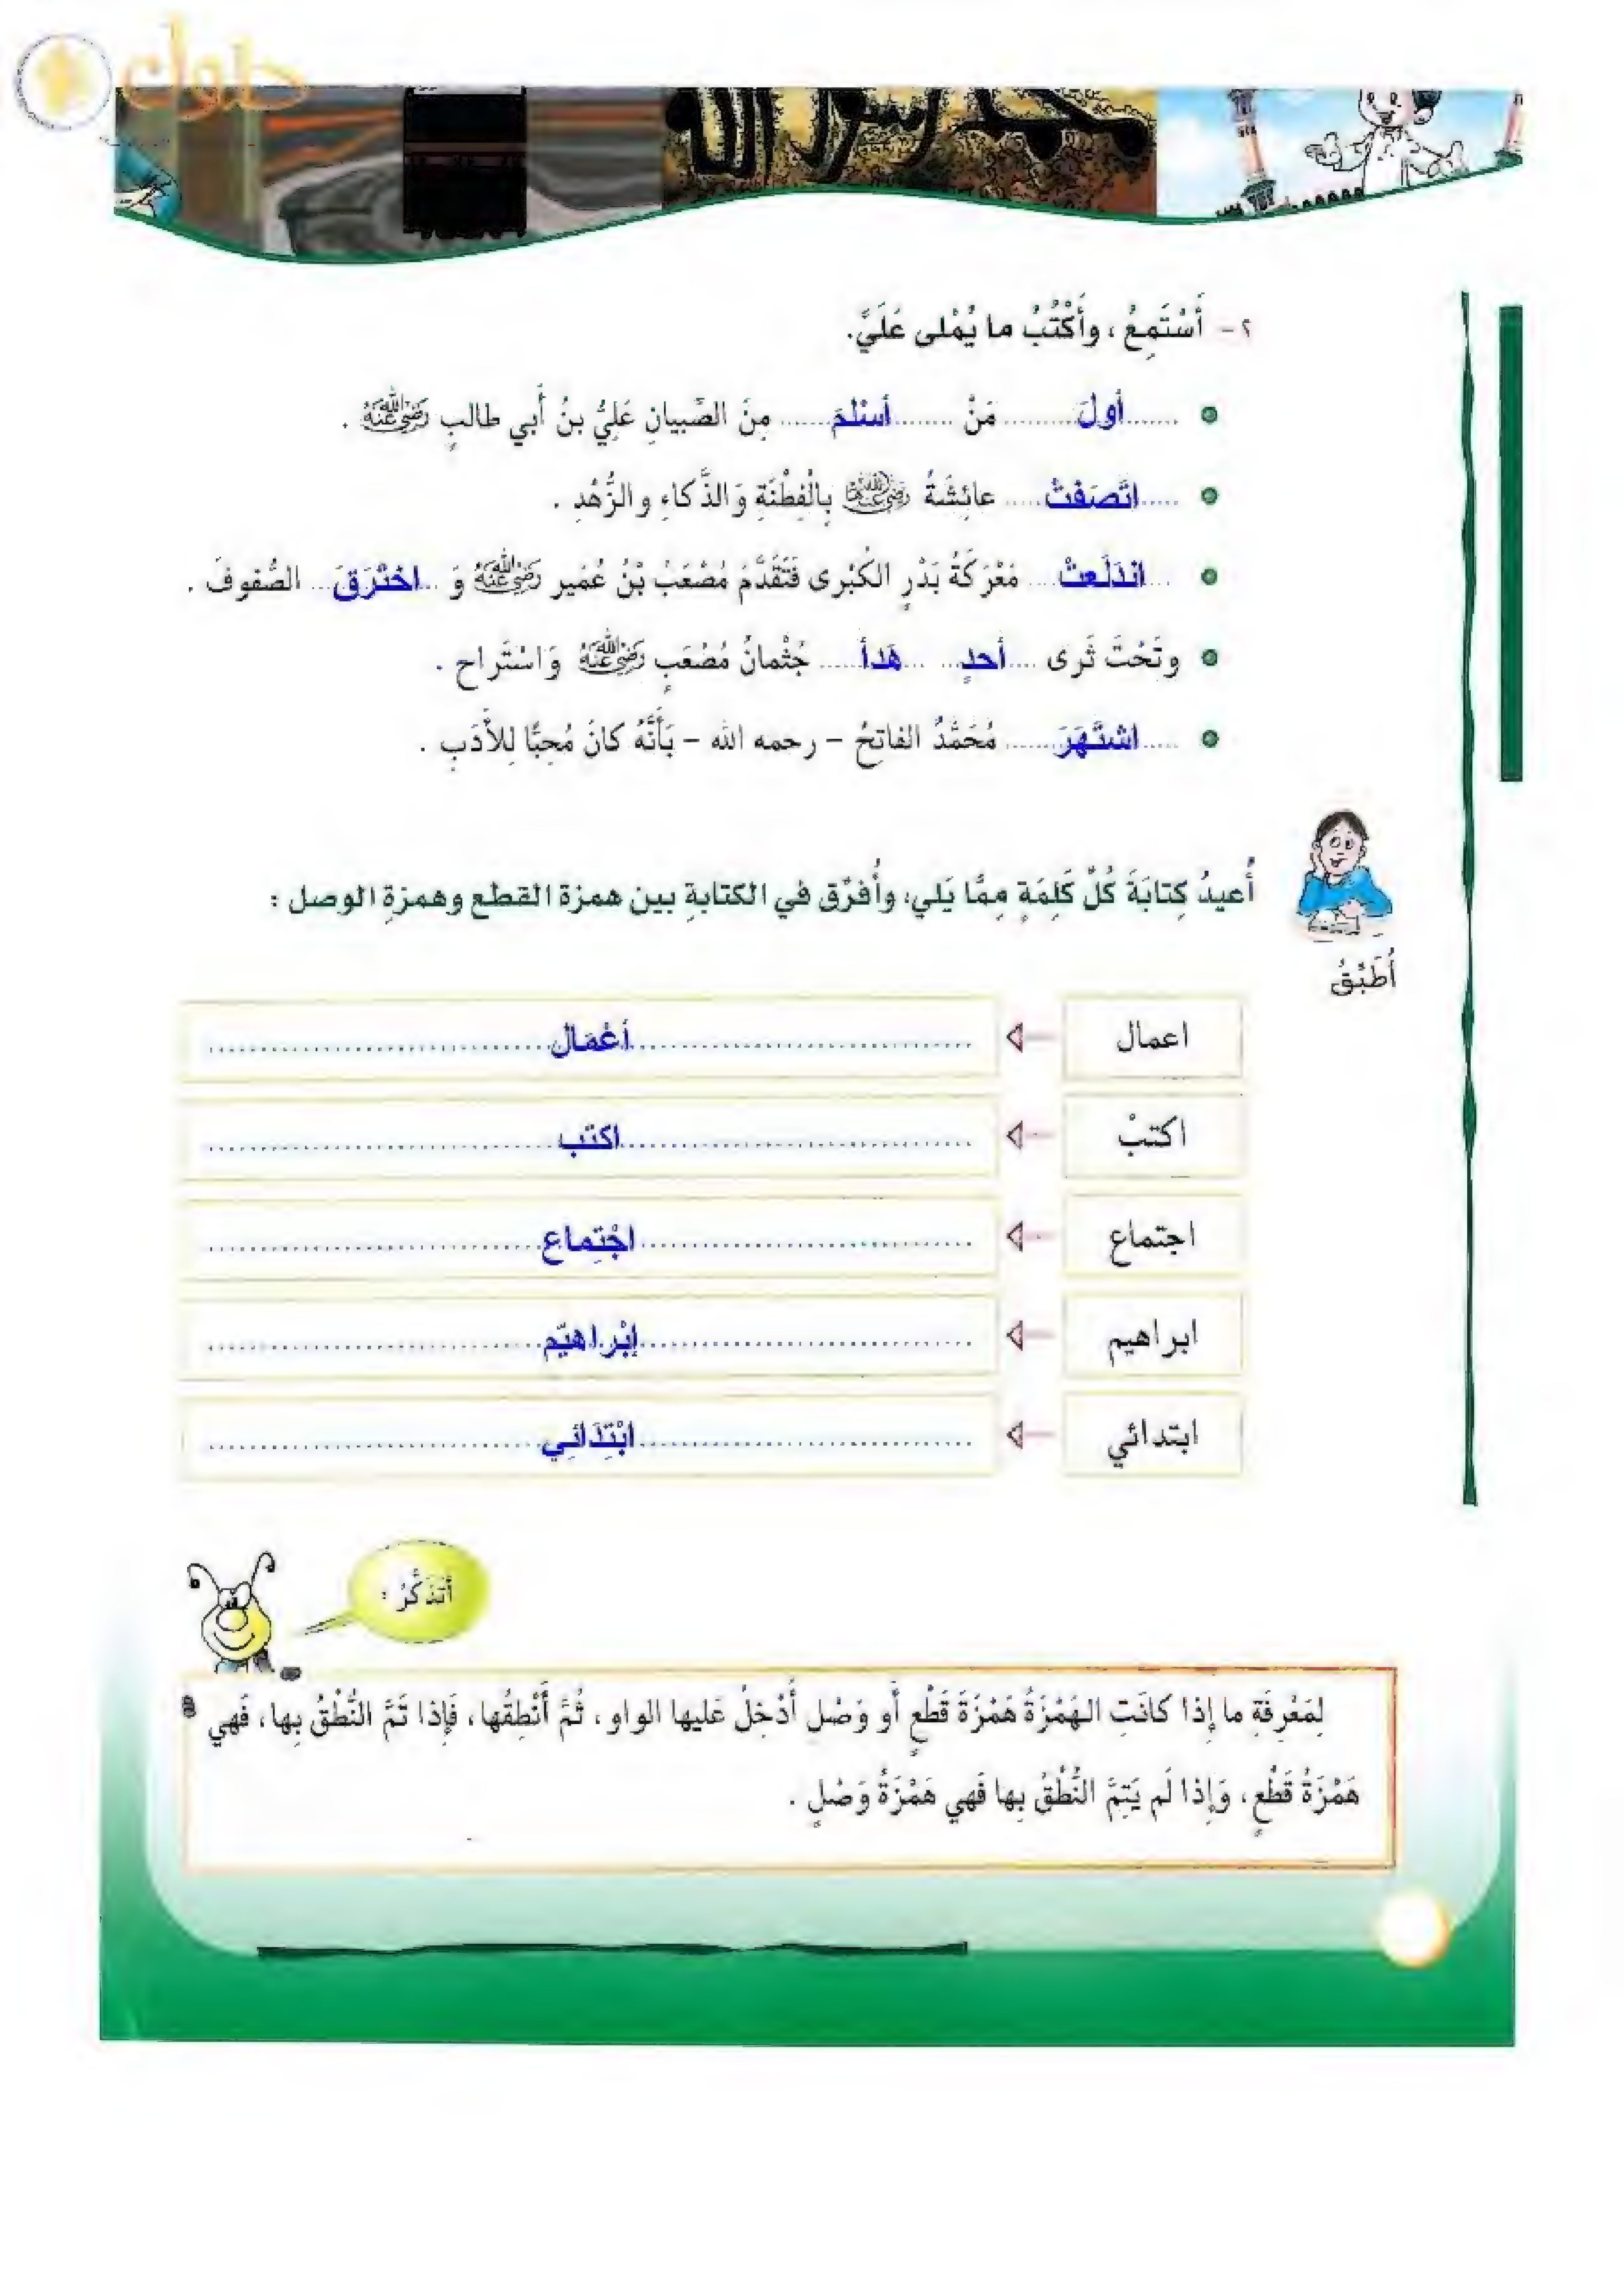 حلول
محمد رسول الله
٢ - أَسْتَمِعُ ، وأَكْتُبُ ما يُمْلى عَلَيَّ.
أولَ مَنْ أسْلمَ مِنَ الصِّبيانِ عَلِيُّ بنُ أَبي طالبٍ رَضِيَ اللهُ عَنْهُ .
اتَّصَفَتْ عائِشَةُ رَضِيَ اللهُ عَنْهَا بِالْفِطْنَةِ وَالذَّكاءِ والزُّهْدِ .
انْدَلَعتْ مَعْرَكَةُ بَدْرٍ الكُبْرى فَتَقَدَّمَ مُصْعَبُ بْنُ عُمَير رَضِيَ اللهُ عَنْهُ وَ اخْتَرَقَ الصُّفوفَ .
وتَحْتَ ثَرى أحدٍ هَدأ جُثْمانُ مُصْعَبٍ رَضِيَ اللهُ عَنْهُ وَاسْتَراح .
اشتَهَرَ مُحَمَّدٌ الفاتِحُ - رحمه الله - بَأَنَّهُ كانَ مُحِبًّا لِلأَدَبِ .
أُعيدُ كِتابَةَ كُلِّ كَلِمَةٍ مِمَّا يَلي، وأُفرِّق في الكتابةِ بين همزة القطع وهمزةِ الوصل :
أُطَبِّقُ
اعمال أعْمَال
اكتبْ اكتب
اجتماع اجْتِماع
ابراهيم إبْراهيّم
ابتدائي ابْتِدَائِي
أتَذَكَّرُ :
لِمَعْرِفَةِ ما إذا كانَتِ الهَمْزَةُ هَمْزَةَ قَطْعٍ أَو وَصْل أُدْخِلُ عَليها الواو ، ثُمَّ أَنْطِقُها، فَإِذا تَمَّ النُّطْقُ بِها، فَهي
هَمْزَةُ قَطْعٍ، وَإِذا لَم يَتِمَّ النُّطْقُ بِها فَهي هَمْزَةُ وَصْلٍ .